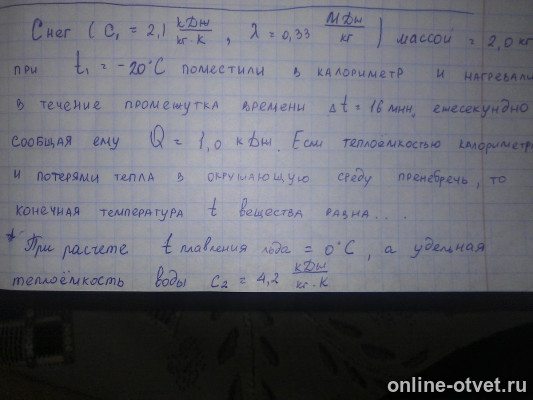 Снег ( C₁ = 2,1 кДж/кг·К , λ = 0,33 МДж/кг ) массой = 2,0 кг
при t₁ = -20°C поместили в калориметр и нагревали
в течение промежутка времени Δt = 16 мин, ежесекундно
сообщая ему Q = 1,0 кДж. Если теплоёмкостью калориметра
и потерями тепла в окружающую среду пренебречь, то
конечная температура t вещества равна...
* При расчете t плавления льда = 0°C, а удельная
теплоёмкость воды C₂ = 4,2 кДж/кг·К
online-otvet.ru